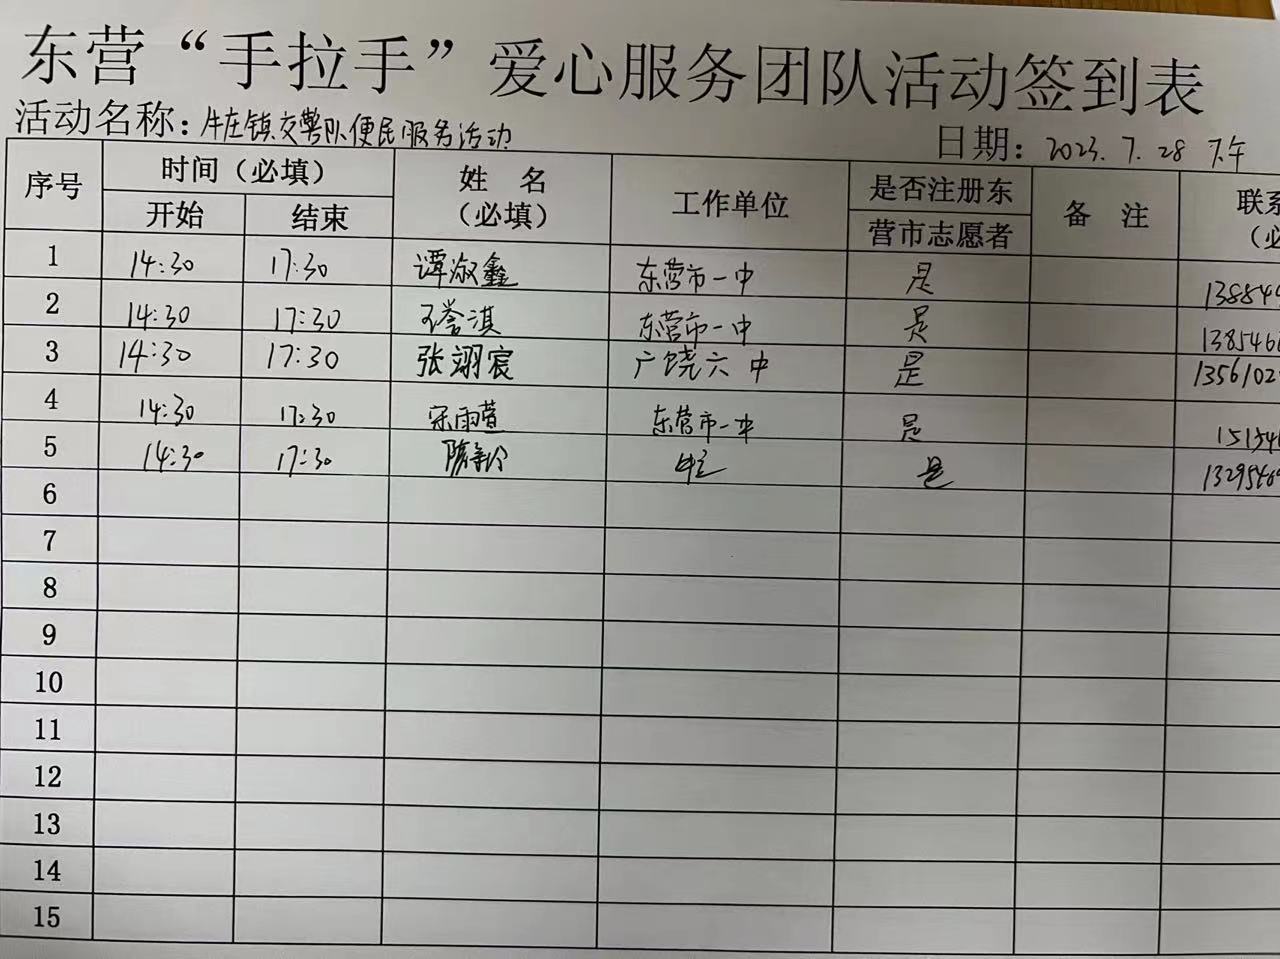 东营“手拉手”爱心服务团队活动签到表
活动名称：牛庄镇交警队便民服务活动 日期：2023.7.28 下午
序号 时间（必填） 姓 名（必填） 工作单位 是否注册东营市志愿者 备 注 联系
开始 结束
1 14:30 17:30 谭淑鑫 东营市一中 是 138849
2 14:30 17:30 誉淇 东营市一中 是 138546
3 14:30 17:30 张翊宸 广饶六中 是 1356102
4 14:30 17:30 宋雨萱 东营市一中 是 15134
5 14:30 17:30 是 1329546
6
7
8
9
10
11
12
13
14
15